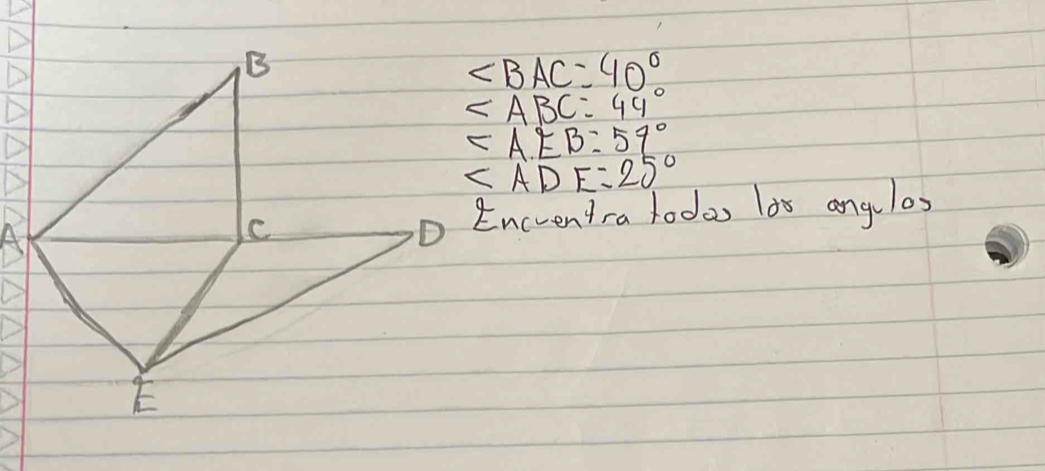 B
<BAC=40°
<ABC=44°
<AEB=57°
<ADE=25°
A
C
D
Encuentra todos los angulos
E